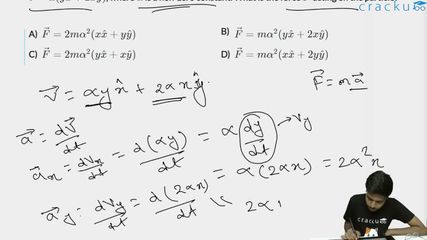 cracku
A) F⃗ = 2mα²(xx̂ + yŷ)
B) F⃗ = mα²(yx̂ + 2xŷ)
C) F⃗ = 2mα²(yx̂ + xŷ)
D) F⃗ = mα²(xx̂ + 2yŷ)
v⃗ = αy x̂ + 2αx ŷ
F⃗ = ma⃗
a⃗ = dv⃗/dt
a⃗x = dvx/dt = d(αy)/dt = α dy/dt → vy
= α(2αx) = 2α²x
a⃗y = dvy/dt = d(2αx)/dt = 2α
cracku